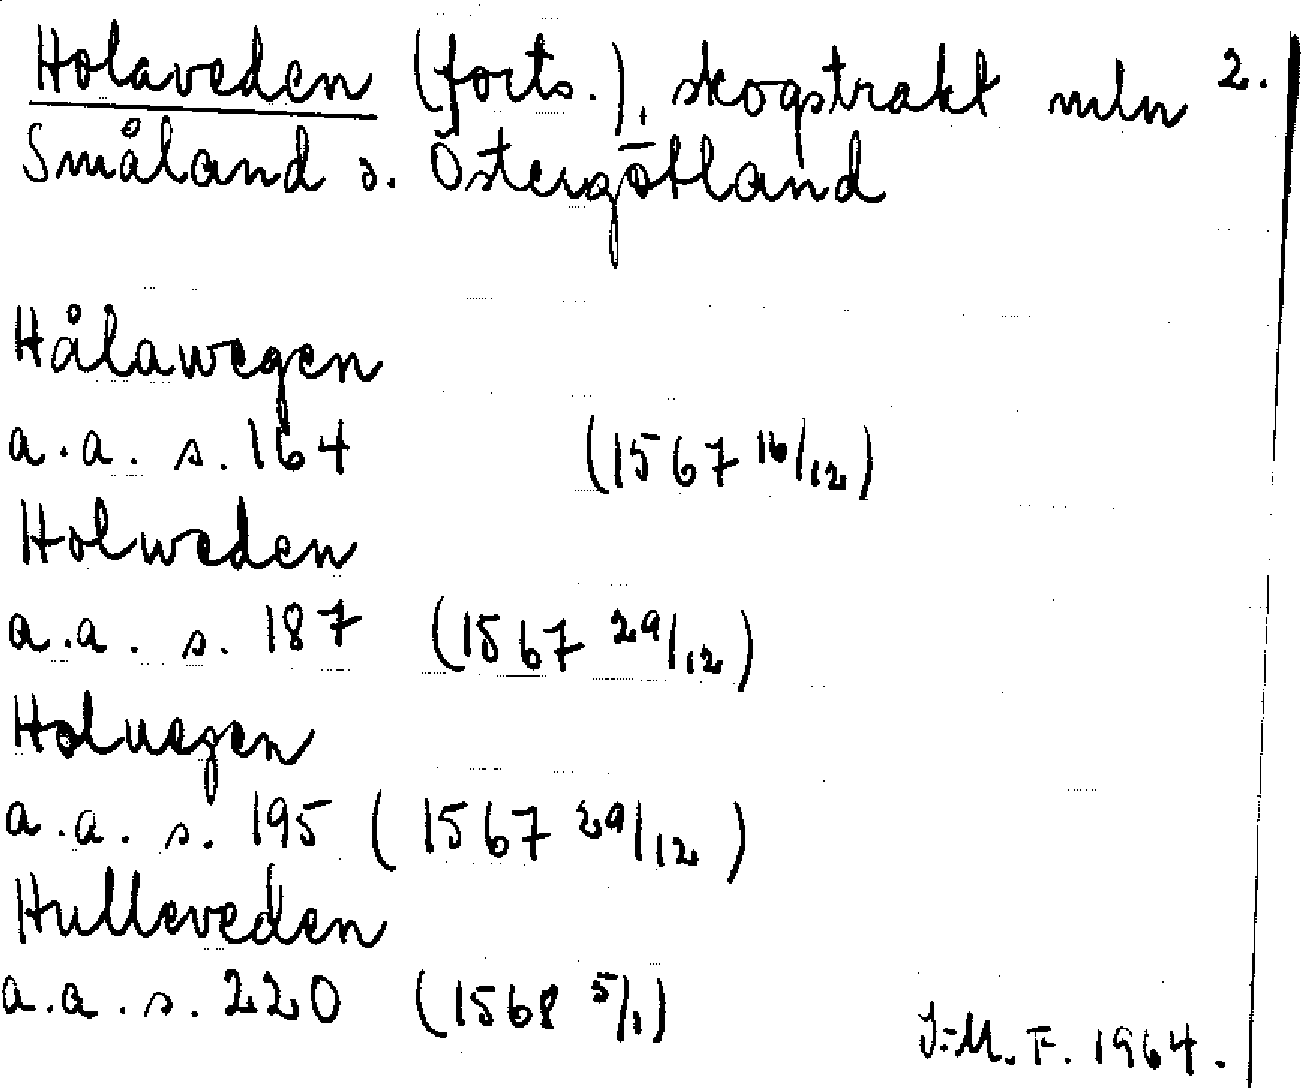 Holaveden (forts.), skogstrakt mln 2.
Småland o. Östergötland
Hålawegen
a.a. s. 164 (1567 16/12)
Holweden
a.a. s. 187 (1567 29/12)
Holuegen
a.a. s. 195 (1567 29/12)
Hulleveden
a.a. s. 220 (1568 5/1)
J-M. F. 1964.